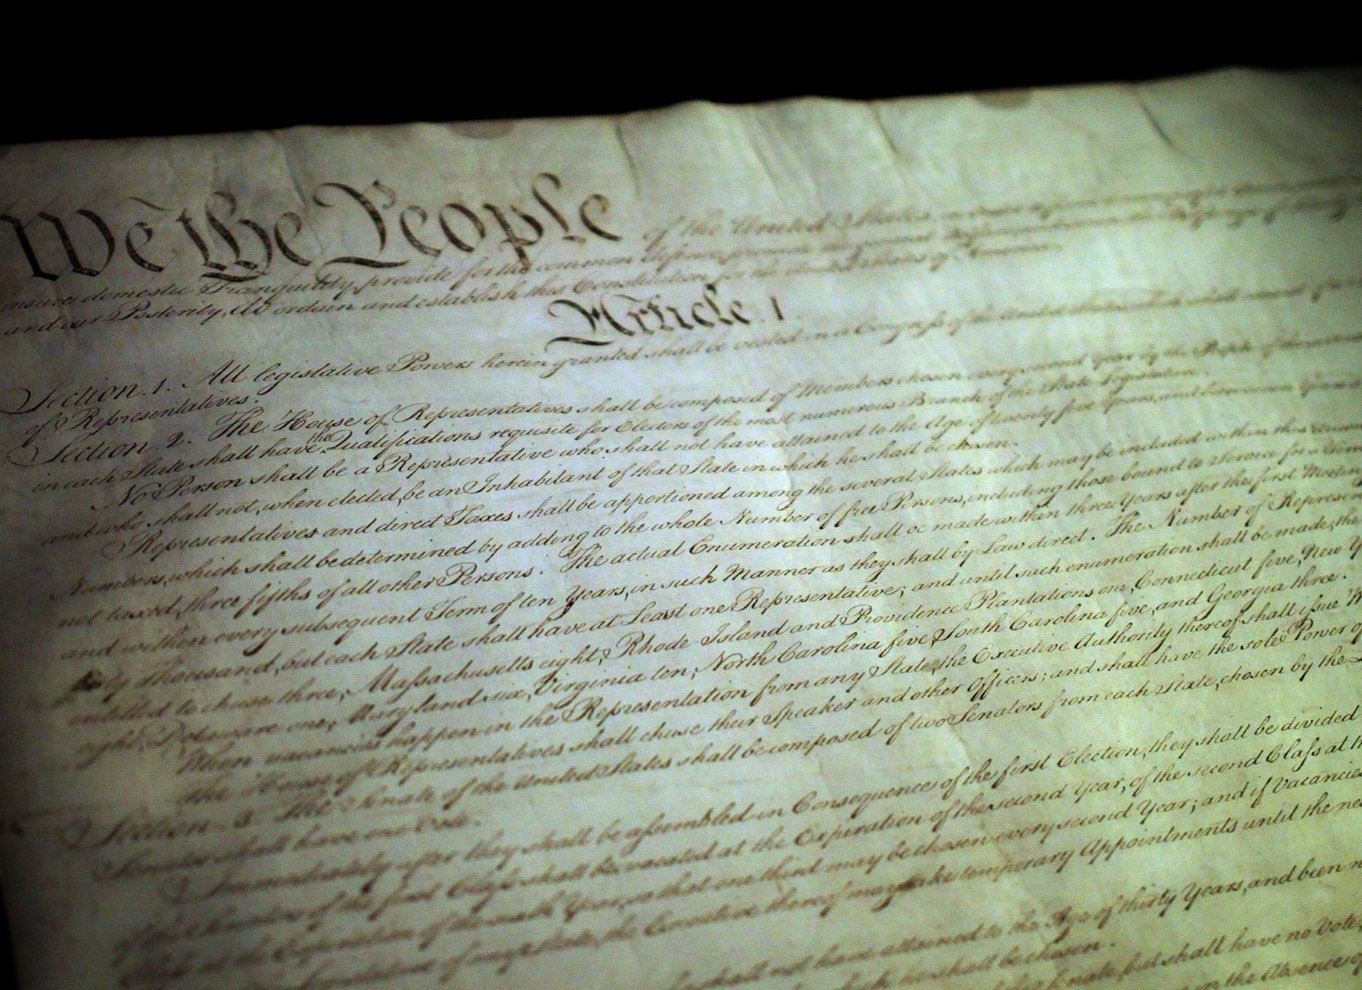 We the People of the United States
insure domestic Tranquility, provide for the common defence,
and our Posterity, do ordain and establish this Constitution for the United States of America.
Article. I.
Section. 1. All legislative Powers herein granted shall be vested in a Congress of the United States
of Representatives.
Section. 2. The House of Representatives shall be composed of Members chosen every second Year by the People of the several
in each State shall have the Qualifications requisite for Electors of the most numerous Branch of the State Legislature.
No Person shall be a Representative who shall not have attained to the Age of twenty five Years, and been seven Years
and who shall not, when elected, be an Inhabitant of that State in which he shall be chosen.
Representatives and direct Taxes shall be apportioned among the several States which may be included within this Union
Numbers, which shall be determined by adding to the whole Number of free Persons, including those bound to Service for a Term
not taxed, three fifths of all other Persons. The actual Enumeration shall be made within three Years after the first Meeting
and within every subsequent Term of ten Years, in such Manner as they shall by Law direct. The Number of Represen
thirty Thousand, but each State shall have at Least one Representative; and until such enumeration shall be made, the
entitled to chuse three, Massachusetts eight, Rhode-Island and Providence Plantations one, Connecticut five, New Y
eight, Delaware one, Maryland six, Virginia ten, North Carolina five, South Carolina five, and Georgia three.
When vacancies happen in the Representation from any State, the Executive Authority thereof shall issue W
The House of Representatives shall chuse their Speaker and other Officers; and shall have the sole Power of
Section. 3. The Senate of the United States shall be composed of two Senators from each State, chosen by the
Senator shall have one Vote.
Immediately after they shall be assembled in Consequence of the first Election, they shall be divided
of the Senators of the first Class shall be vacated at the Expiration of the second Year, of the second Class at t
Class at the Expiration of the sixth Year, so that one third may be chosen every second Year; and if Vacancie
Legislature of any State, the Executive thereof may make temporary Appointments until the ne
shall not have attained to the Age of thirty Years, and been n
which he shall be chosen.
Senate, but shall have no Vote,
in the Absence of